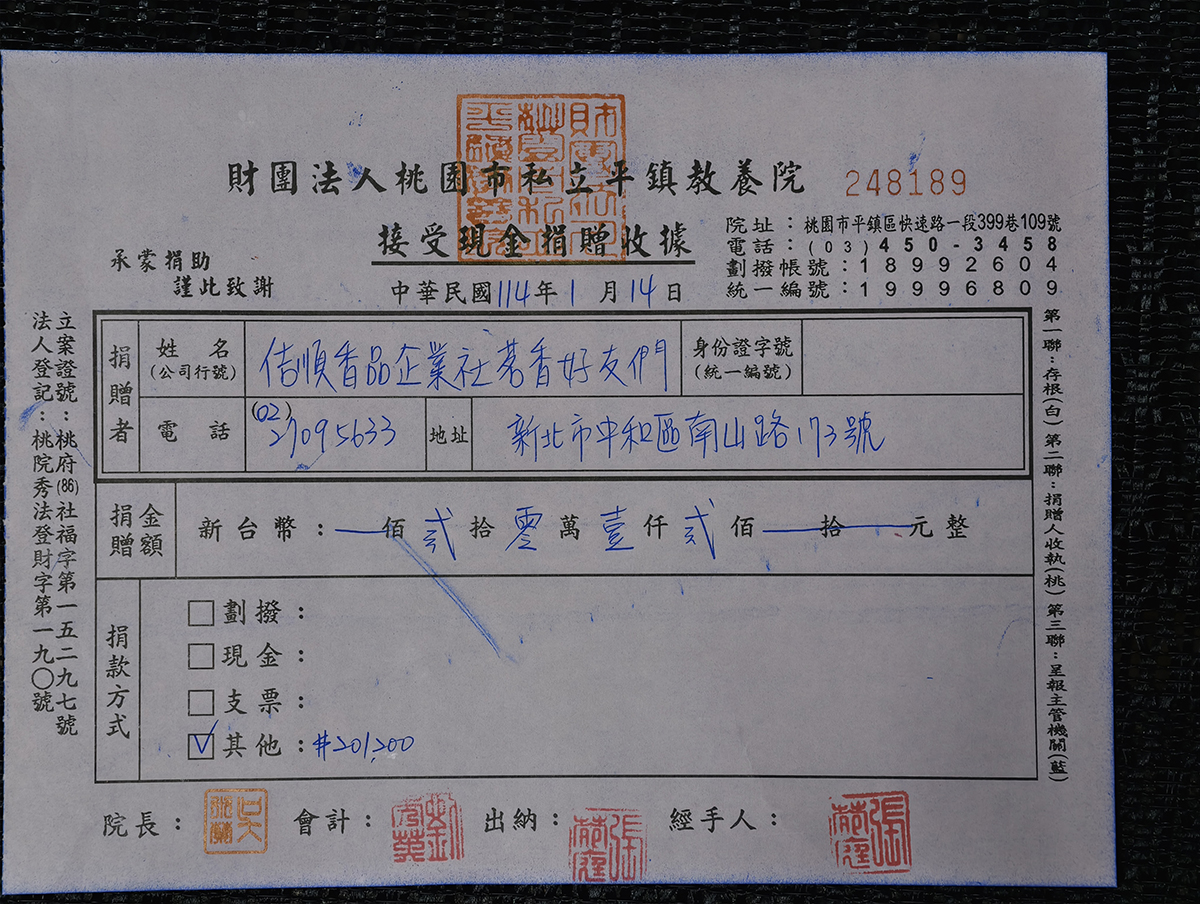 財團法人桃園市私立平鎮教養院
248189
接受現金捐贈收據
承蒙捐助
謹此致謝
中華民國114年1月14日
院址：桃園市平鎮區快速路一段399巷109號
電話：(03)450-3458
劃撥帳號：18992604
統一編號：19996809
立案證號：桃府(86)社福字第一五二九七號
法人登記：桃院秀法登財字第一九〇號
捐贈者
姓名
(公司行號)
佶順香品企業社茗香好友們
身份證字號
(統一編號)
電話
(02)
27095633
地址
新北市中和區南山路173號
捐贈金額
新台幣：佰貳拾零萬壹仟貳佰拾元整
捐款方式
劃撥：
現金：
支票：
其他：#201,200
第一聯：存根(白)第二聯：捐贈人收執(桃)第三聯：呈報主管機關(藍)
院長：
會計：
出納：
經手人：